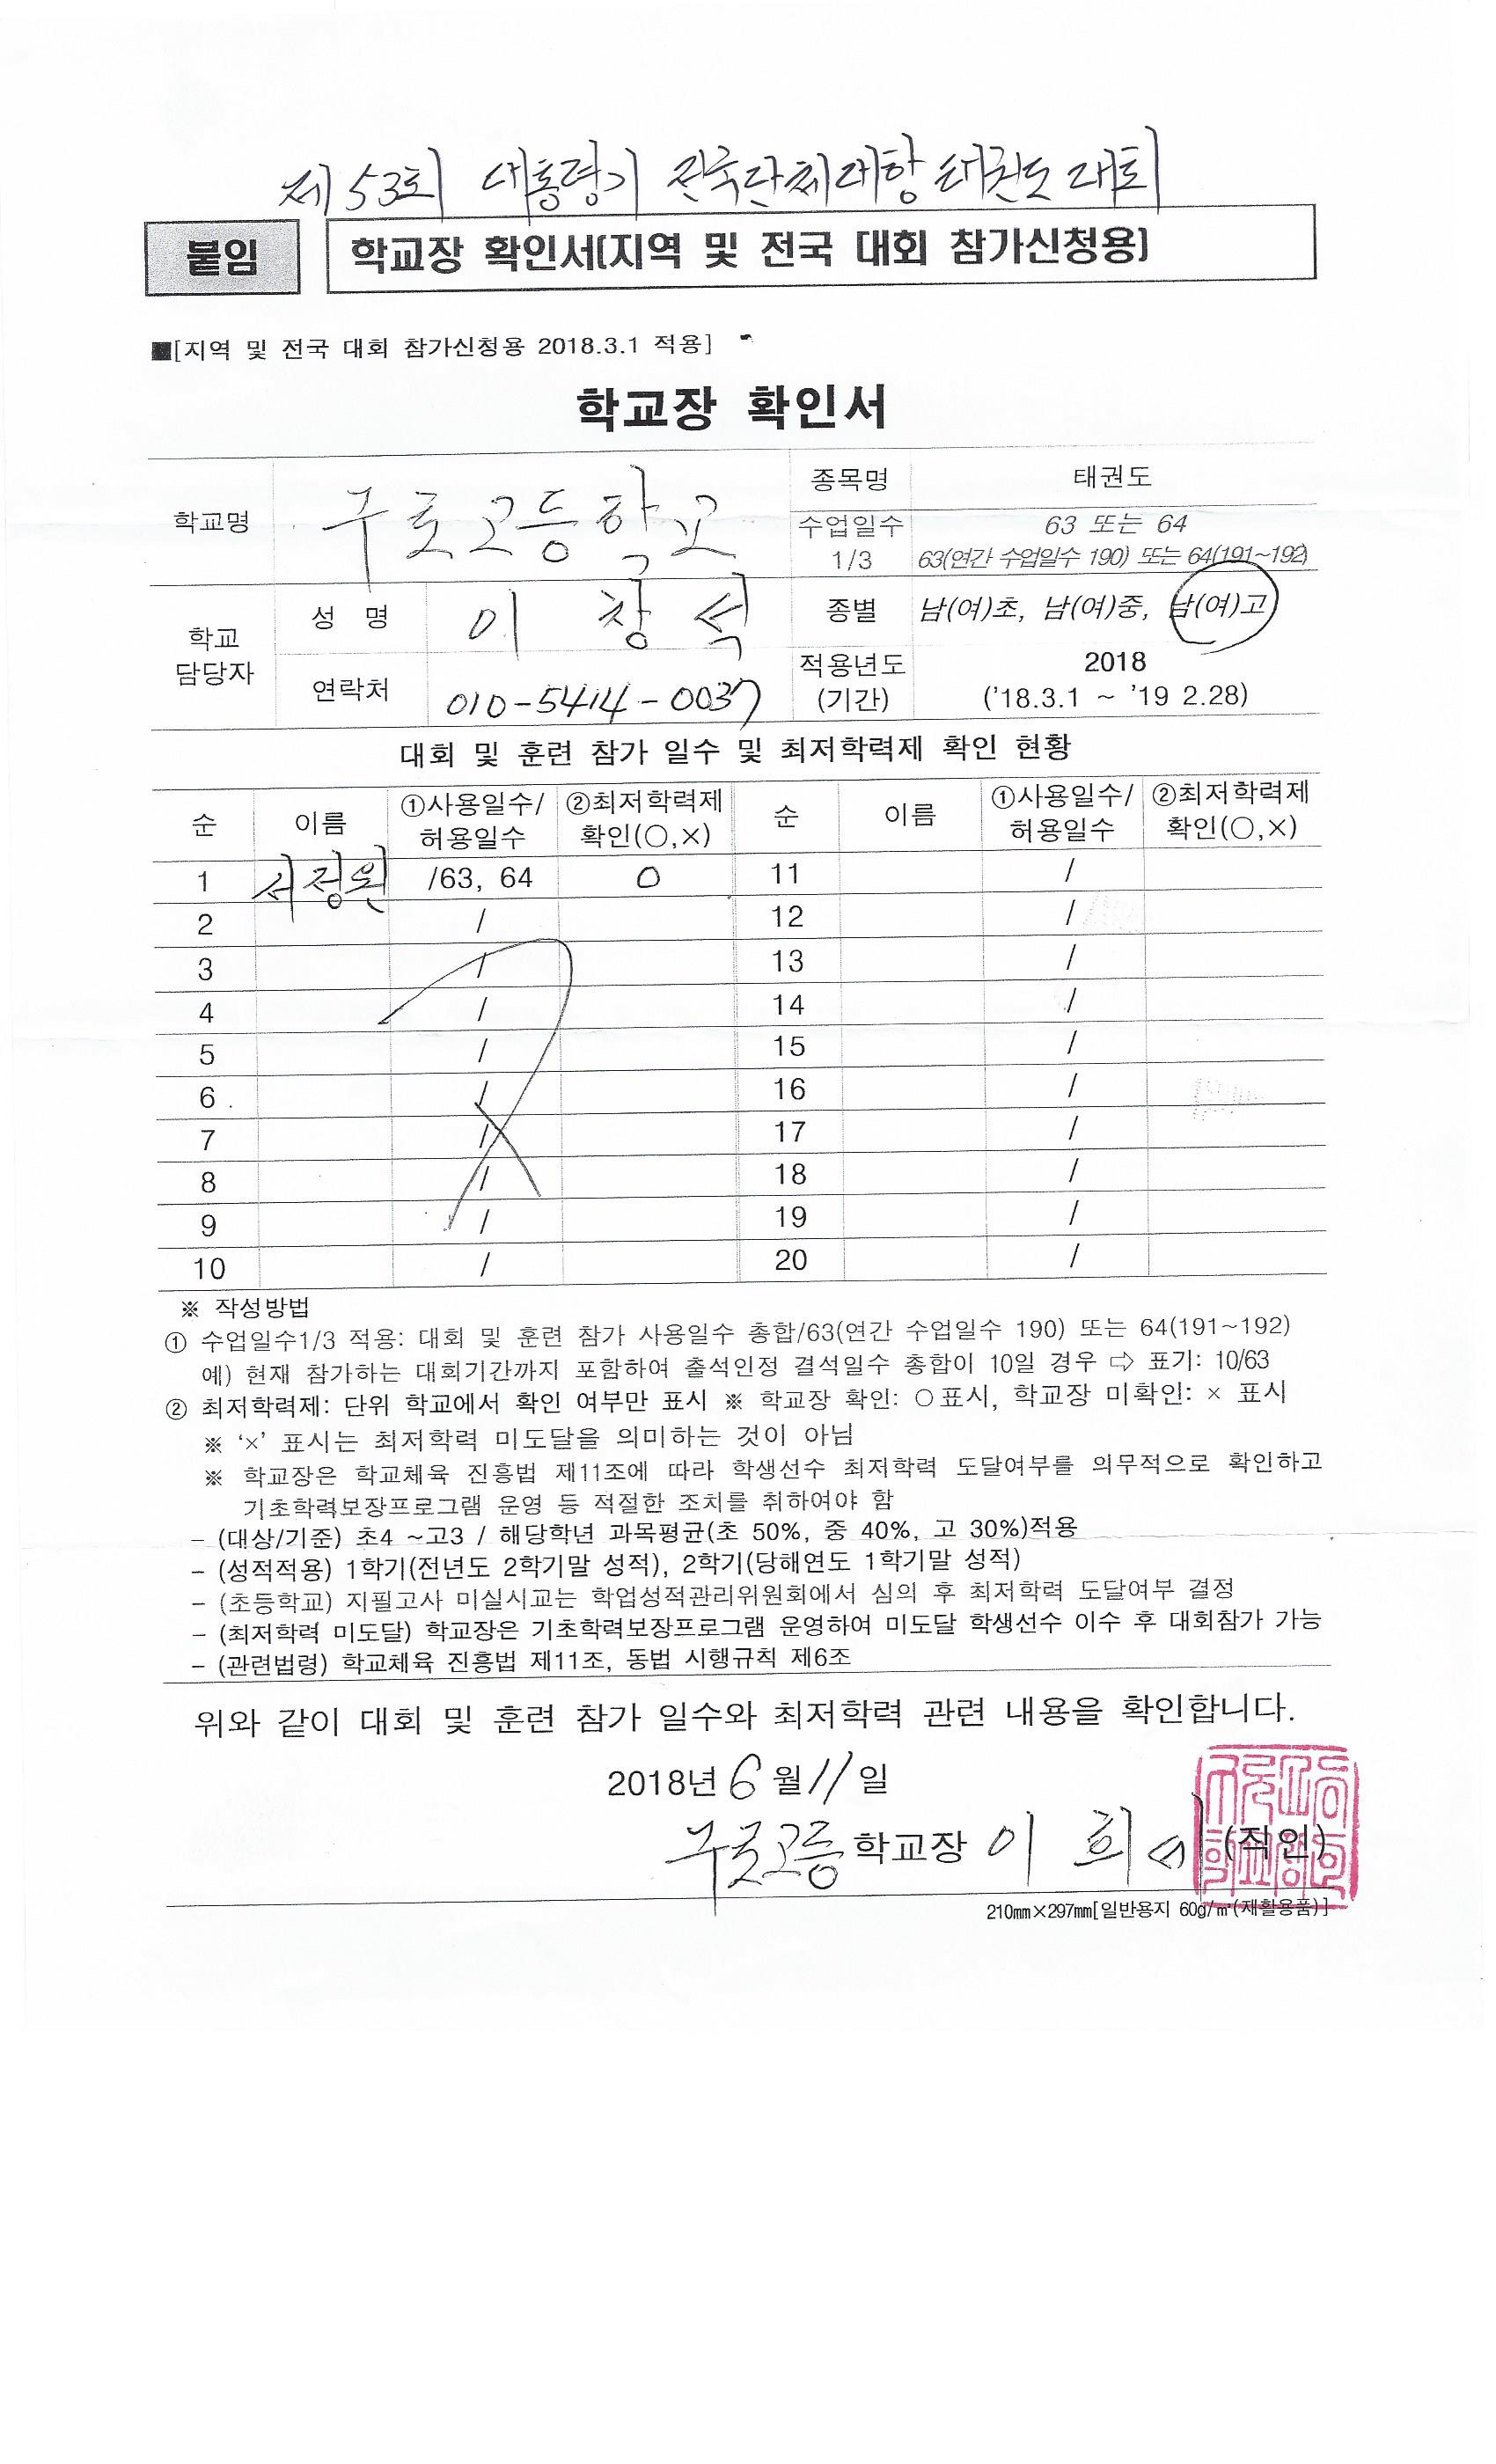 제53회 대통령기 전국단체대항태권도대회
붙임
학교장 확인서[지역 및 전국 대회 참가신청용]
■[지역 및 전국 대회 참가신청용 2018.3.1 적용]
학교장 확인서
학교명 구로고등학교 종목명 태권도
수업일수 1/3 63 또는 64
63(연간 수업일수 190) 또는 64(191~192)
학교 담당자 성 명 이창석 종별 남(여)초, 남(여)중, 남(여)고
연락처 010-5414-0037 적용년도 (기간) 2018
('18.3.1 ~ '19 2.28)
대회 및 훈련 참가 일수 및 최저학력제 확인 현황
순 이름 ①사용일수/허용일수 ②최저학력제 확인(○,×) 순 이름 ①사용일수/허용일수 ②최저학력제 확인(○,×)
1 서정원 /63, 64 ○ 11 /
2 / 12 /
3 / 13 /
4 / 14 /
5 / 15 /
6 / 16 /
7 / 17 /
8 / 18 /
9 / 19 /
10 / 20 /
※ 작성방법
① 수업일수1/3 적용: 대회 및 훈련 참가 사용일수 총합/63(연간 수업일수 190) 또는 64(191~192)
예) 현재 참가하는 대회기간까지 포함하여 출석인정 결석일수 총합이 10일 경우 ⇨ 표기: 10/63
② 최저학력제: 단위 학교에서 확인 여부만 표시 ※ 학교장 확인: ○표시, 학교장 미확인: × 표시
※ '×' 표시는 최저학력 미도달을 의미하는 것이 아님
※ 학교장은 학교체육 진흥법 제11조에 따라 학생선수 최저학력 도달여부를 의무적으로 확인하고
기초학력보장프로그램 운영 등 적절한 조치를 취하여야 함
- (대상/기준) 초4 ~고3 / 해당학년 과목평균(초 50%, 중 40%, 고 30%)적용
- (성적적용) 1학기(전년도 2학기말 성적), 2학기(당해연도 1학기말 성적)
- (초등학교) 지필고사 미실시교는 학업성적관리위원회에서 심의 후 최저학력 도달여부 결정
- (최저학력 미도달) 학교장은 기초학력보장프로그램 운영하여 미도달 학생선수 이수 후 대회참가 가능
- (관련법령) 학교체육 진흥법 제11조, 동법 시행규칙 제6조
위와 같이 대회 및 훈련 참가 일수와 최저학력 관련 내용을 확인합니다.
2018년 6월 11일
구로고등 학교장 이희 (직인)
210㎜×297㎜[일반용지 60g/㎡(재활용품)]